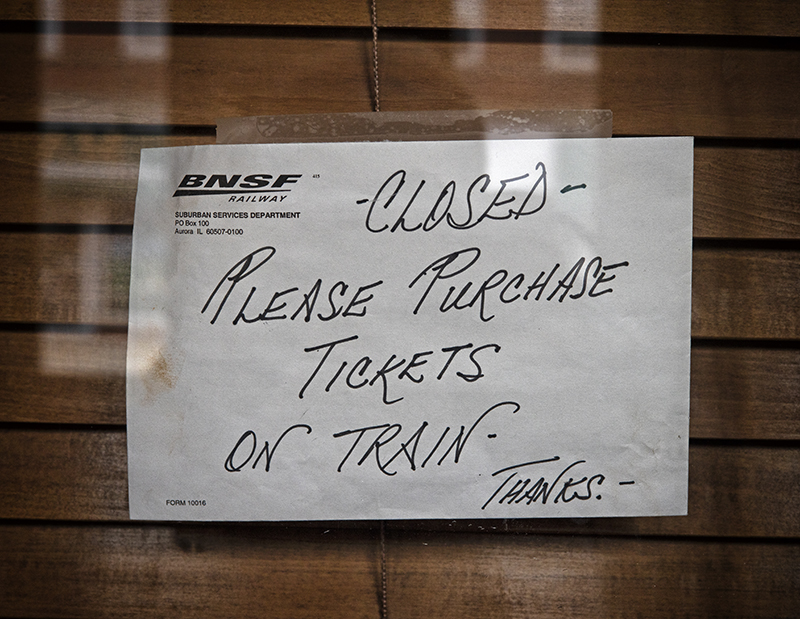 BNSF
RAILWAY
415
SUBURBAN SERVICES DEPARTMENT
PO Box 100
Aurora IL 60507-0100
-CLOSED-
PLEASE PURCHASE
TICKETS
ON TRAIN-
THANKS.-
FORM 10016